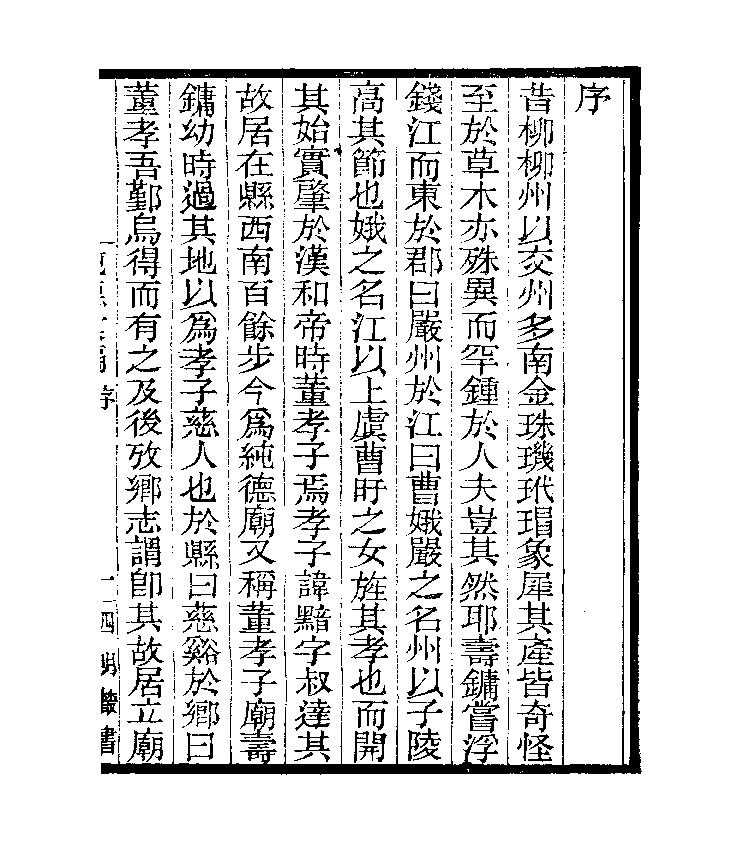 序
昔柳柳州以交州多南金珠璣玳瑁象犀其產皆奇怪
至於草木亦殊異而罕鍾於人夫豈其然耶壽鏞嘗浮
錢江而東於郡曰嚴州於江曰曹娥嚴之名州以子陵
高其節也娥之名江以上虞曹盱之女旌其孝也而開
其始實肇於漢和帝時董孝子焉孝子諱黯字叔達其
故居在縣西南百餘步今爲純德廟又稱董孝子廟壽
鏞幼時過其地以爲孝子慈人也於縣曰慈谿於鄉曰
董孝吾鄞烏得而有之及後攷鄉志謂卽其故居立廟
序 一 四明叢書